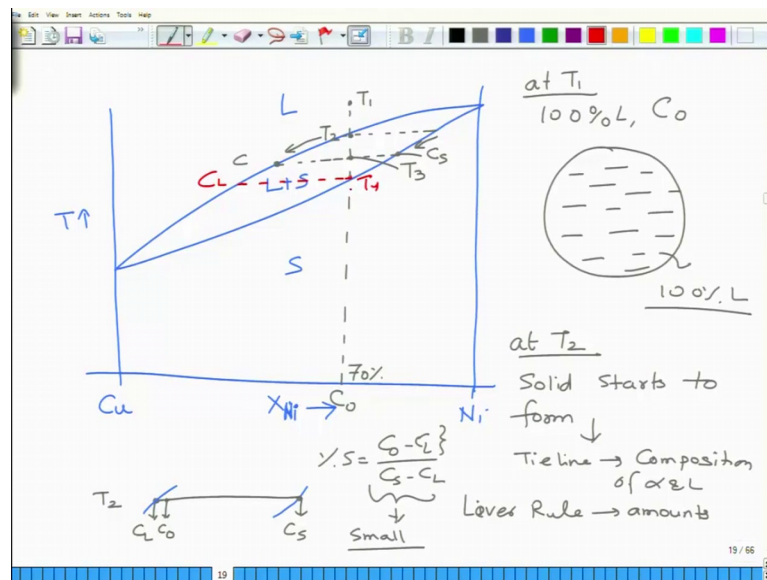 File Edit View Insert Actions Tools Help
B I
L
T1
T2
C
CS
T3
CL
L+S
T4
T↑
S
70%
Cu
XNi →
C0
Ni
at T1
100%L, C0
100% L
at T2
Solid starts to
form
Tieline → Composition
of α & L
Liever Rule → amounts
%S = C0 - CL } / CS - CL
Small
T2
CL C0
CS
19 / 66
19